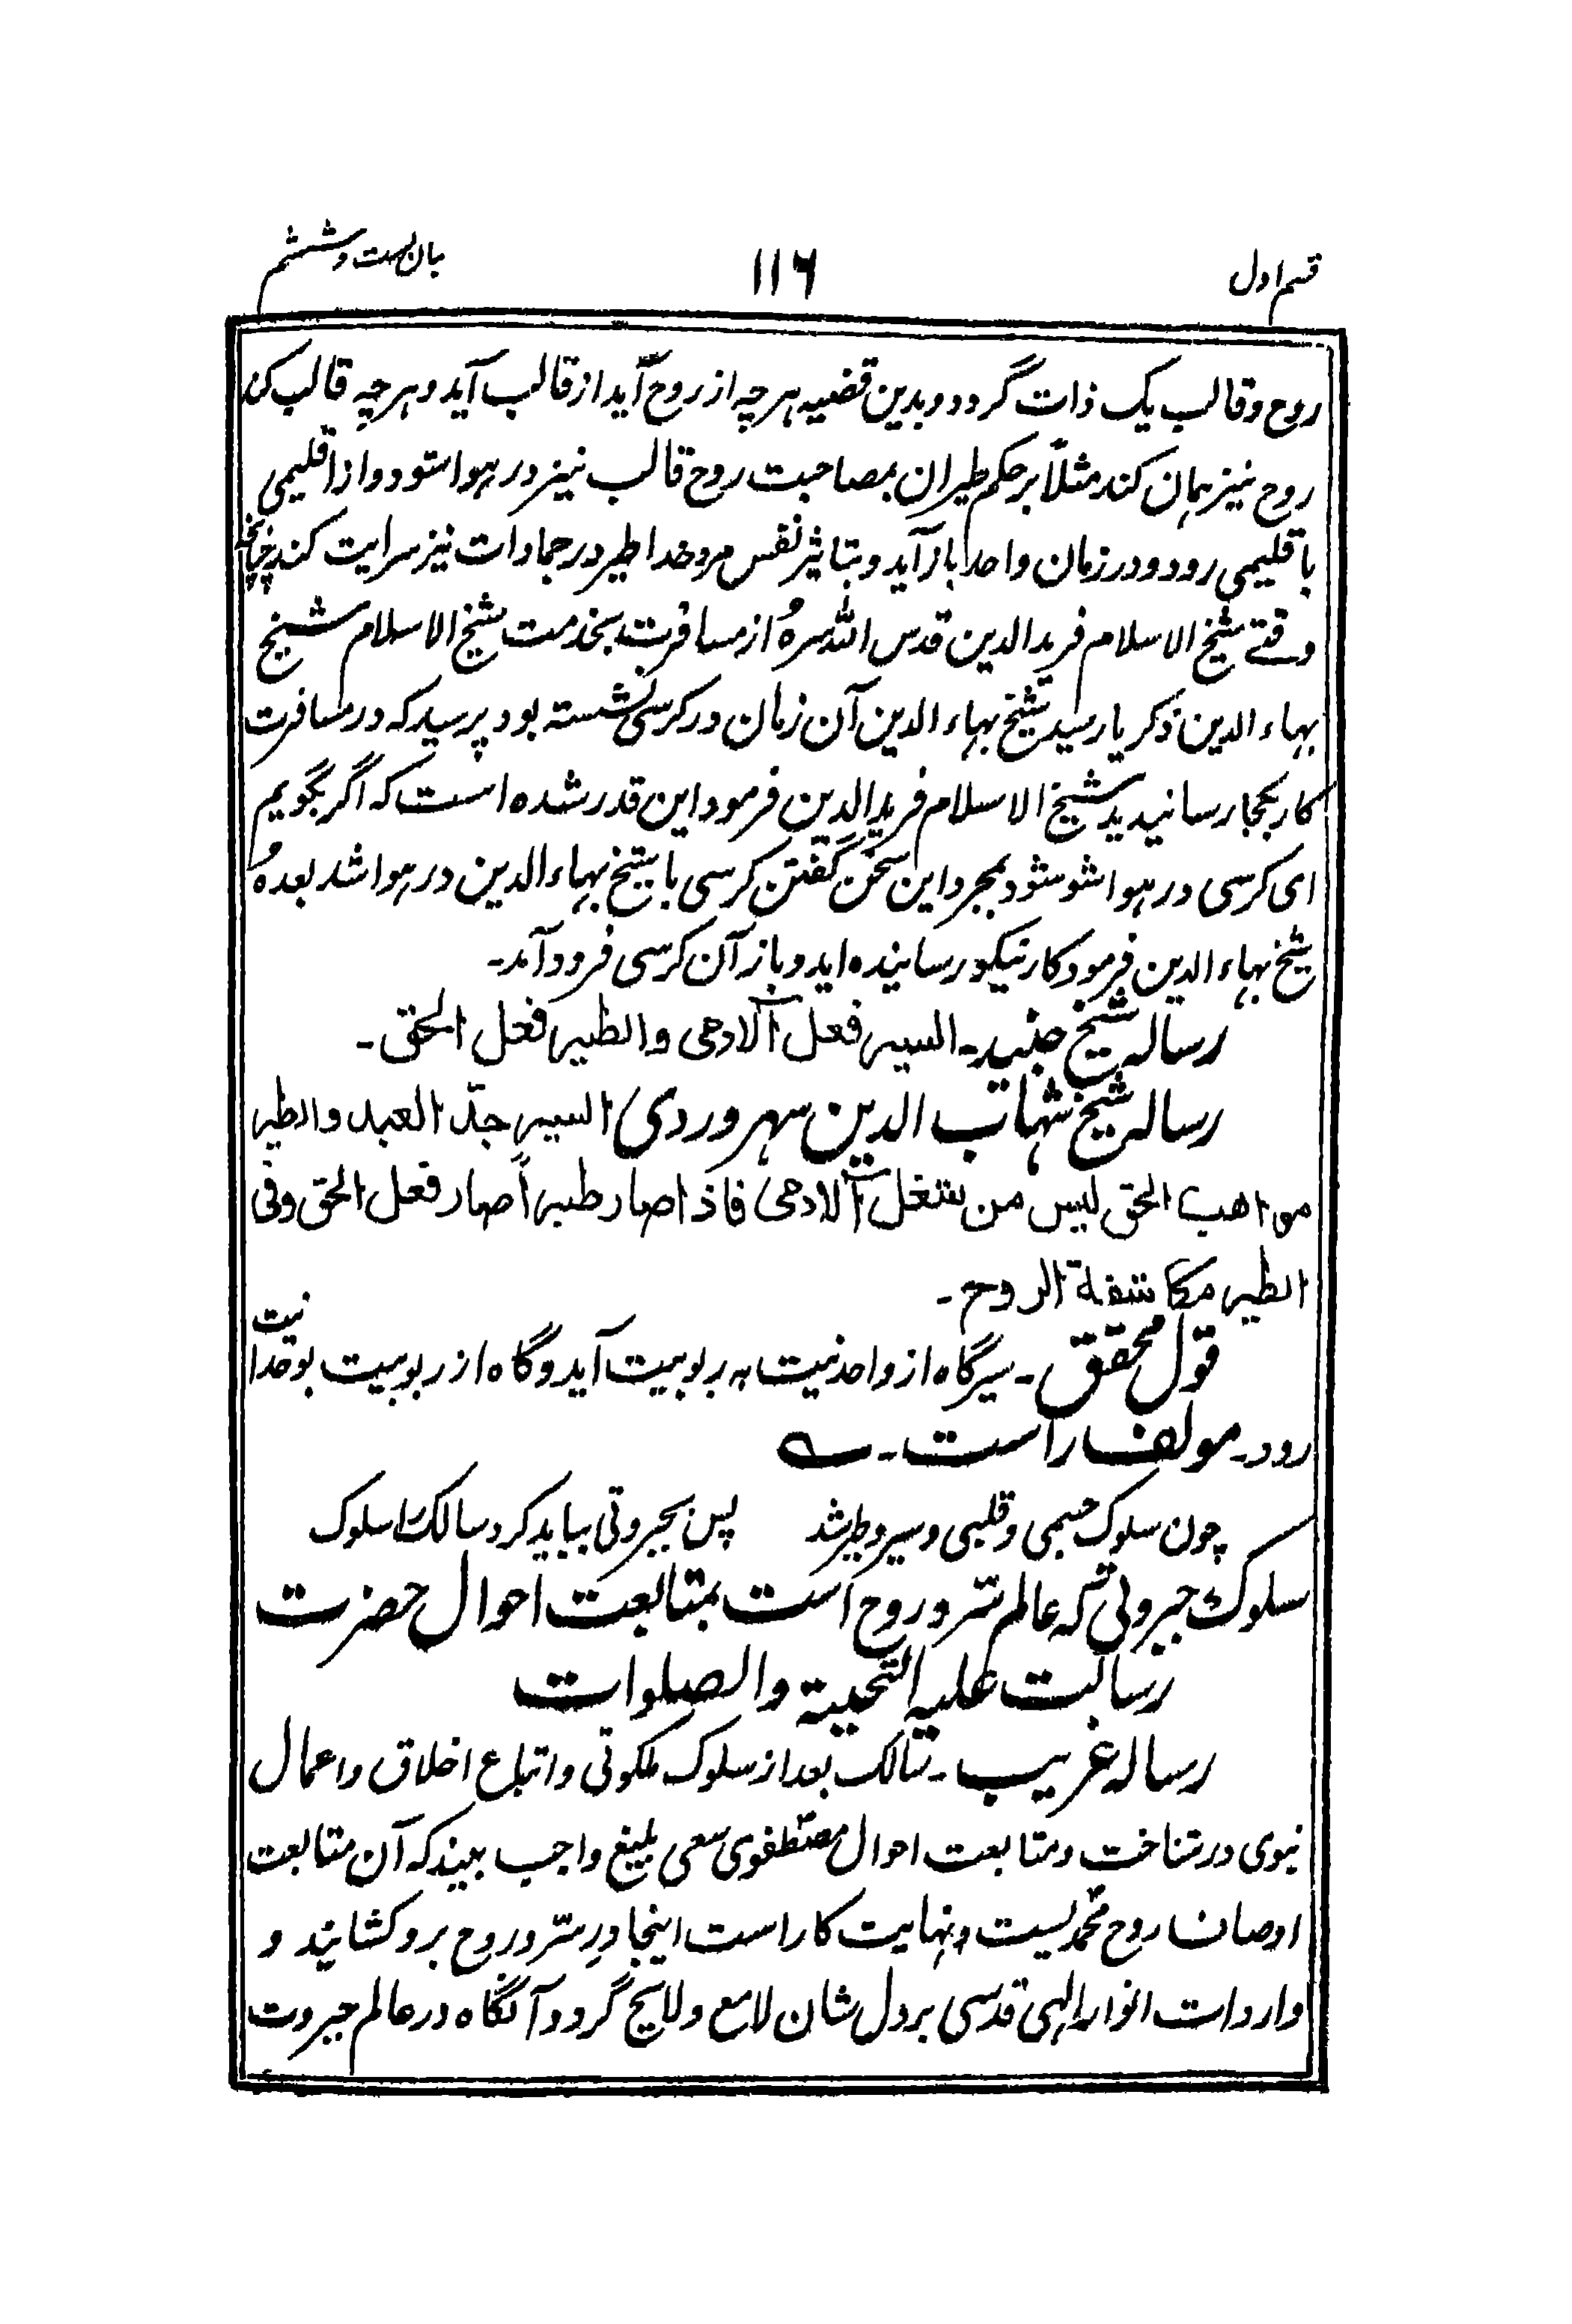 قسم اول
۱۱۶
بیان بست و ششم
روح و قالب یک ذات گردد و بدین قضیه هرچه از روح آید از قالب آید و هرچه قالب کند
روح نیز همان کند مثلاً بر حکم طیران بمصاحبت روح قالب نیز در هوا شود و از اقلیمی
باقلیمی رود و در زمان واحد باز آید و بتاثیر نفس مرد خدا طیر در جمادات نیز سرایت کند چنانچه
وقتے شیخ الاسلام فرید الدین قدس اللہ سرہٗ از مسافرت بخدمت شیخ الاسلام شیخ
بهاء الدین ذکریا رسید شیخ بهاء الدین آن زمان در کرسی نشسته بود پرسید که در مسافرت
کار بکجا رسانیدید شیخ الاسلام فرید الدین فرمود این قدر شده است که اگر بگویم
ای کرسی در هوا شو شود بمجرد این سخن گفتن کرسی با شیخ بهاء الدین در هوا شد بعدهٗ
شیخ بهاء الدین فرمود کار نیکو رسانیده اید و باز آن کرسی فرود آمد۔
رساله شیخ جنید۔ السیر فعل الآدمی والطیر فعل الحق۔
رساله شیخ شهاب الدین سهروردی السیر جدّ العبد والطیر
مواهب الحق لیس من شغل الآدمی فاذا صار طیراً صار فعل الحق وفی
الطیر مکاشفة الروح۔
قول محقق۔ سیر گاه از واحدنیت به ربوبیت آید و گاه از ربوبیت بوحدانیت
رود۔ مولف راست۔ ؎
چون سلوک جسمی و قلبی و سیر و طیر شد پس بجبروتی بباید کرد سالک را سلوک
سلوک جبروتی که عالم سر و روح است بمتابعت احوال حضرت
رسالت علیه التحیة والصلوات
رساله غریب۔ سالک بعد از سلوک ملکوتی و اتباع اخلاق و اعمال
نبوی در شناخت و متابعت احوال مصطفوی سعی بلیغ واجب بیند که آن متابعت
اوصاف روح محمدیست و نهایت کار است اینجا درِ سرّ و روح برو کشایند و
واردات انوار الٰهی قدسی بر دل شان لامع و لایح گردد آنگاه در عالم جبروت